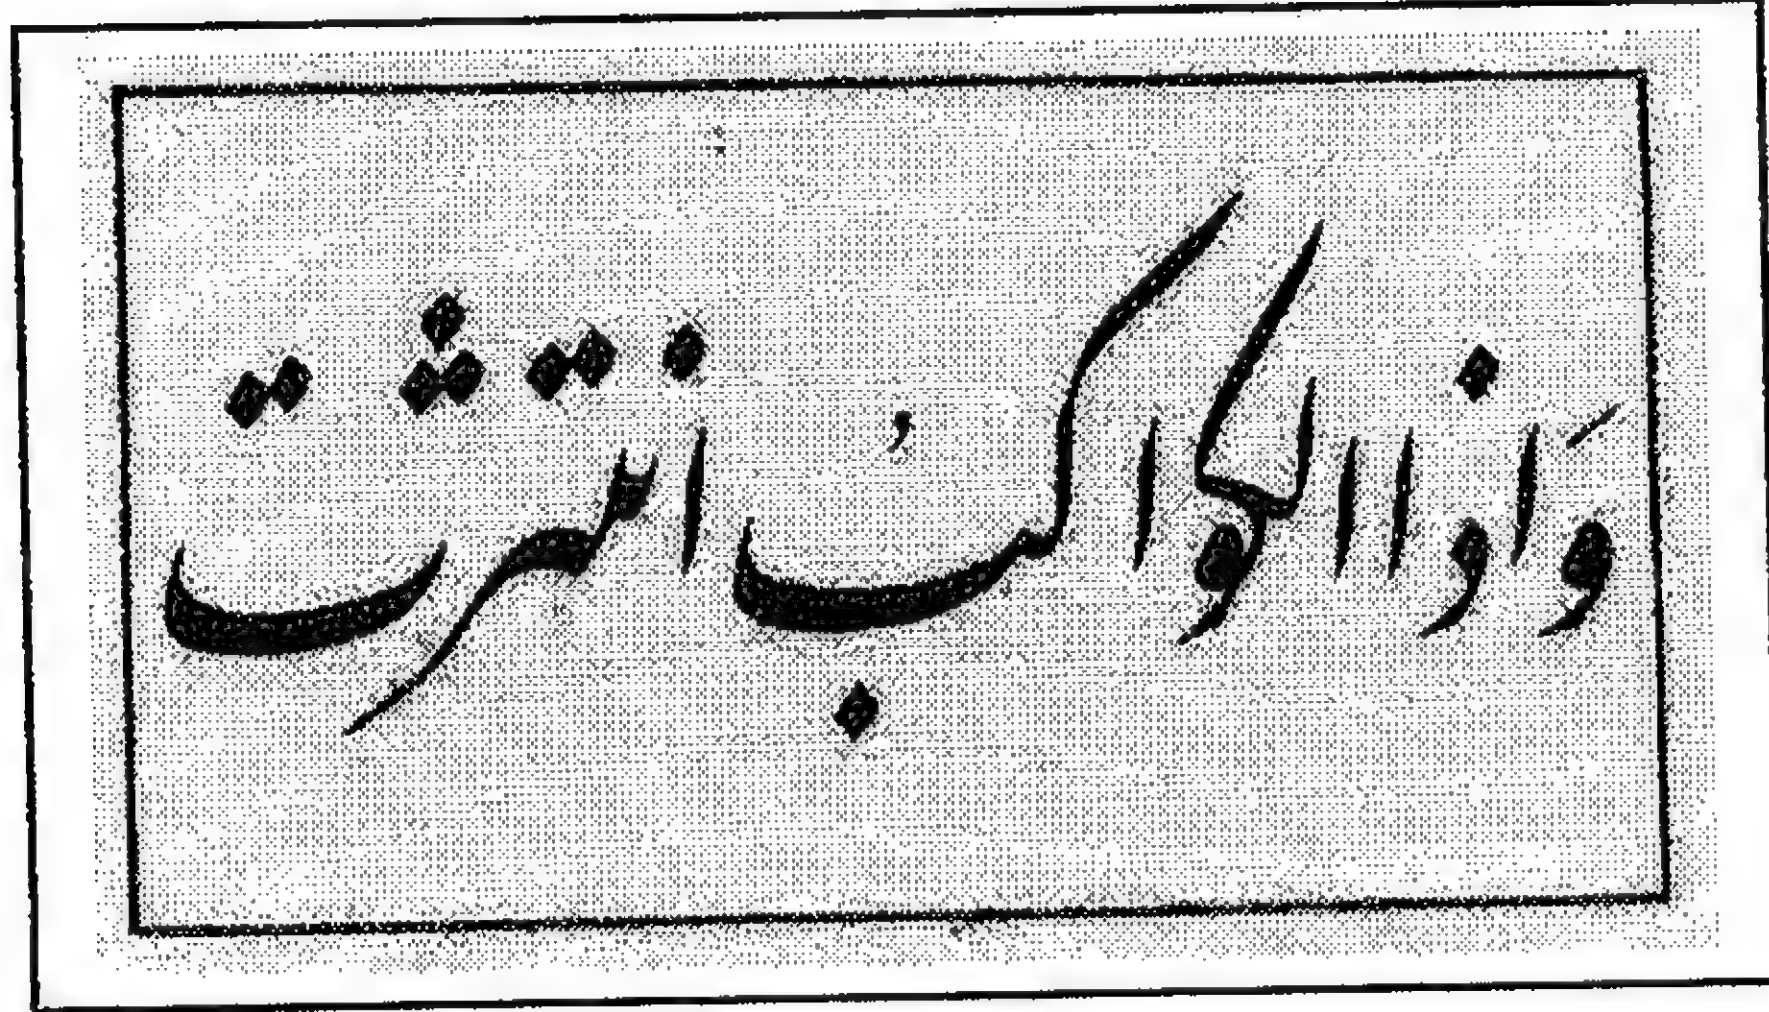 وَاذا الكواكبُ انتثرت